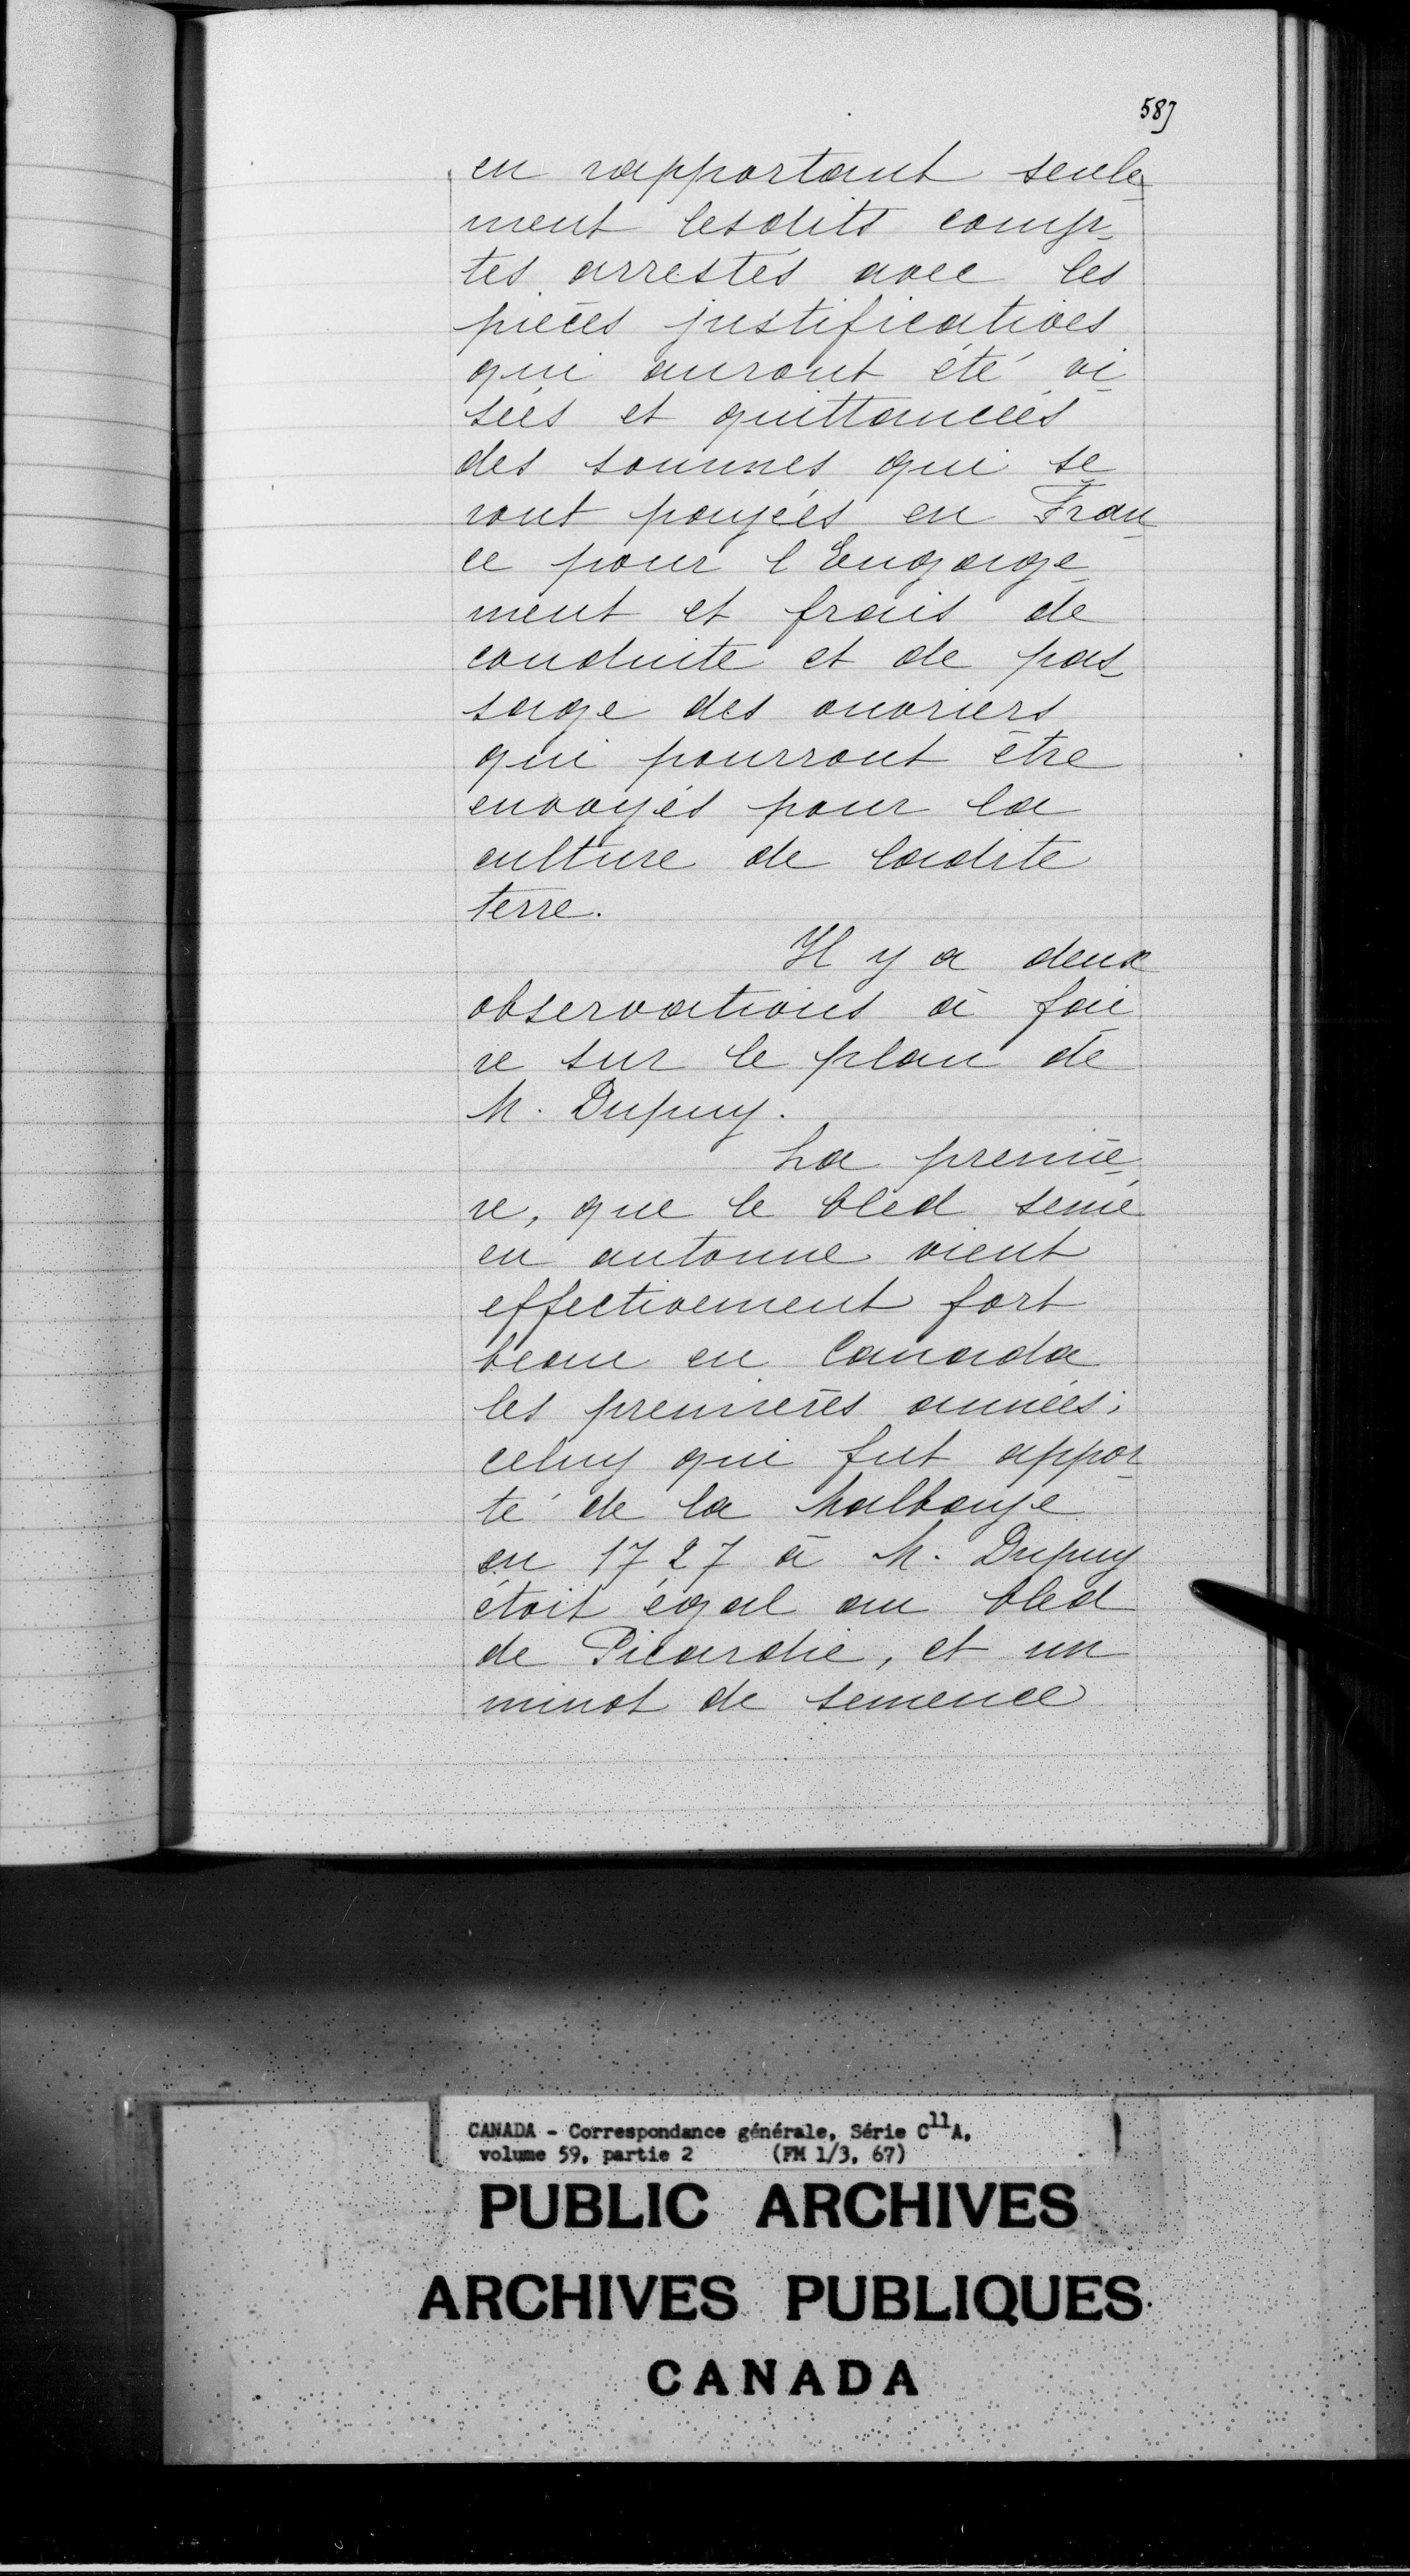 587
en rapportant seule-
ment lesdits comp-
tes arrestés avec les
pièces justificatives
qui auront été vi-
sées et quittancées
des sommes qui se-
ront payées en Fran-
ce pour l'Engage-
ment et frais de
conduite et de pas-
sage des ouvriers
qui pourront être
envoyés pour la
culture de ladite
terre.
Il y a deux
observations à fai-
re sur le plan de
M. Dupuy.
La premiè-
re, que le bled semé
en automne vient
effectivement fort
beau en Canada
les premières années;
celuy qui fut appor-
té de la Malbaye
en 1727 à M. Dupuy
étoit égal au bled
de Picardie, et un
minot de semence
CANADA - Correspondance générale, Série C11A,
volume 59, partie 2 (FM 1/3, 67)
PUBLIC ARCHIVES
ARCHIVES PUBLIQUES
CANADA